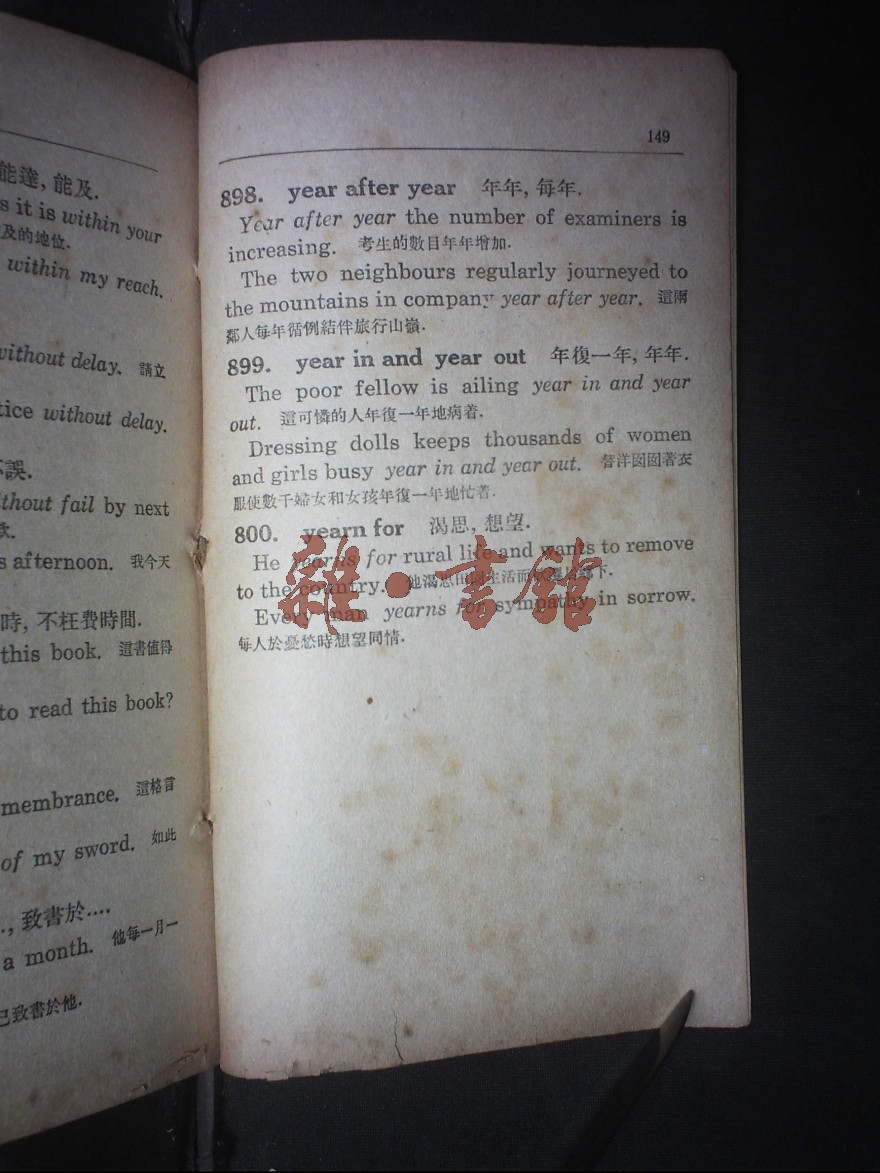 能達, 能及.
s it is within your
及的地位.
within my reach.
without delay. 請立
tice without delay.
不誤.
thout fail by next
欸.
s afternoon. 我今天
時, 不枉費時間.
this book. 這書値得
to read this book?
membrance. 這格言
of my sword. 如此
., 致書於....
a month. 他每一月一
已致書於他.
149
898. year after year 年年, 每年.
Year after year the number of examiners is
increasing. 考生的數目年年增加.
The two neighbours regularly journeyed to
the mountains in company year after year. 這兩
鄰人每年循例結伴旅行山嶺.
899. year in and year out 年復一年, 年年.
The poor fellow is ailing year in and year
out. 這可憐的人年復一年地病着.
Dressing dolls keeps thousands of women
and girls busy year in and year out. 替洋囡囡著衣
服使數千婦女和女孩年復一年地忙着.
800. yearn for 渴思, 想望.
He yearns for rural life and wants to remove
to the country. 他渴思田園生活而
下.
Every man yearns for sympathy in sorrow.
每人於憂愁時想望同情.
雜·書館